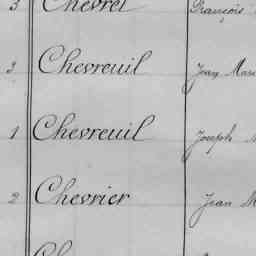 3 Chevrel François
3 Chevreuil Jean Marie
1 Chevreuil Joseph
2 Chevrier Jean M